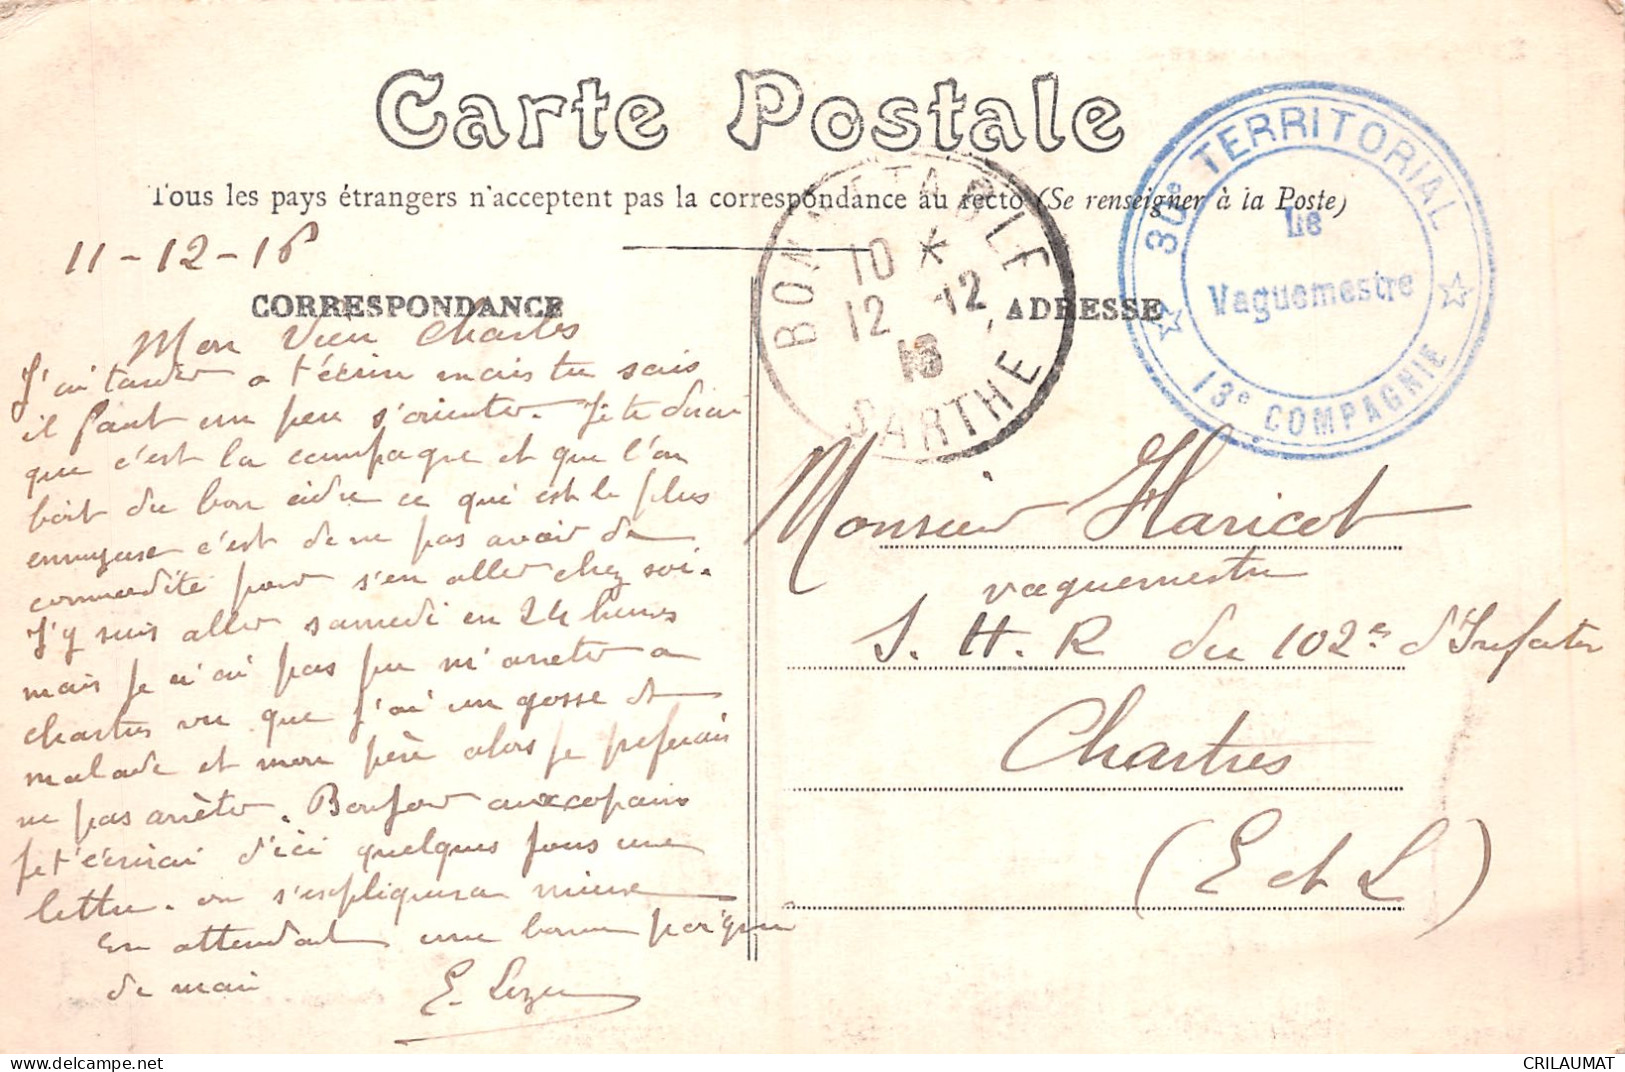 Carte Postale
Tous les pays étrangers n'acceptent pas la correspondance au recto (Se renseigner à la Poste)
11-12-16
CORRESPONDANCE
Mon Vieu Charles
J'ai tarder a t'écrire mais tu sais
il faut un peu s'orienter. Je te dirai
que c'est la campagne et que l'on
boit du bon cidre ce qui est le plus
ennuyeuse c'est de ne pas avoir de
commodité pour s'en aller chez soi.
J'y suis aller samedi en 24 heures
mais je n'ai pas pu m'arreter a
chartres vu que j'ai un gosse de
malade et mon père alors je préferais
ne pas arrêter. Bonjour aux copains
je t'écrirai d'ici quelques jours une
lettre. on s'expliquera mieux
En attendant une bonne poignee
de main
E.
BONNETABLE
10 *
12 -12
16
SARTHE
ADRESSE
30e TERRITORIAL
Le
Vaguemestre
13e COMPAGNIE
Monsieur Haricot
vaguemestre
S. H. R du 102e d'Infaterie
Chartres
(E et L)
delcampe.net
CRILAUMAT